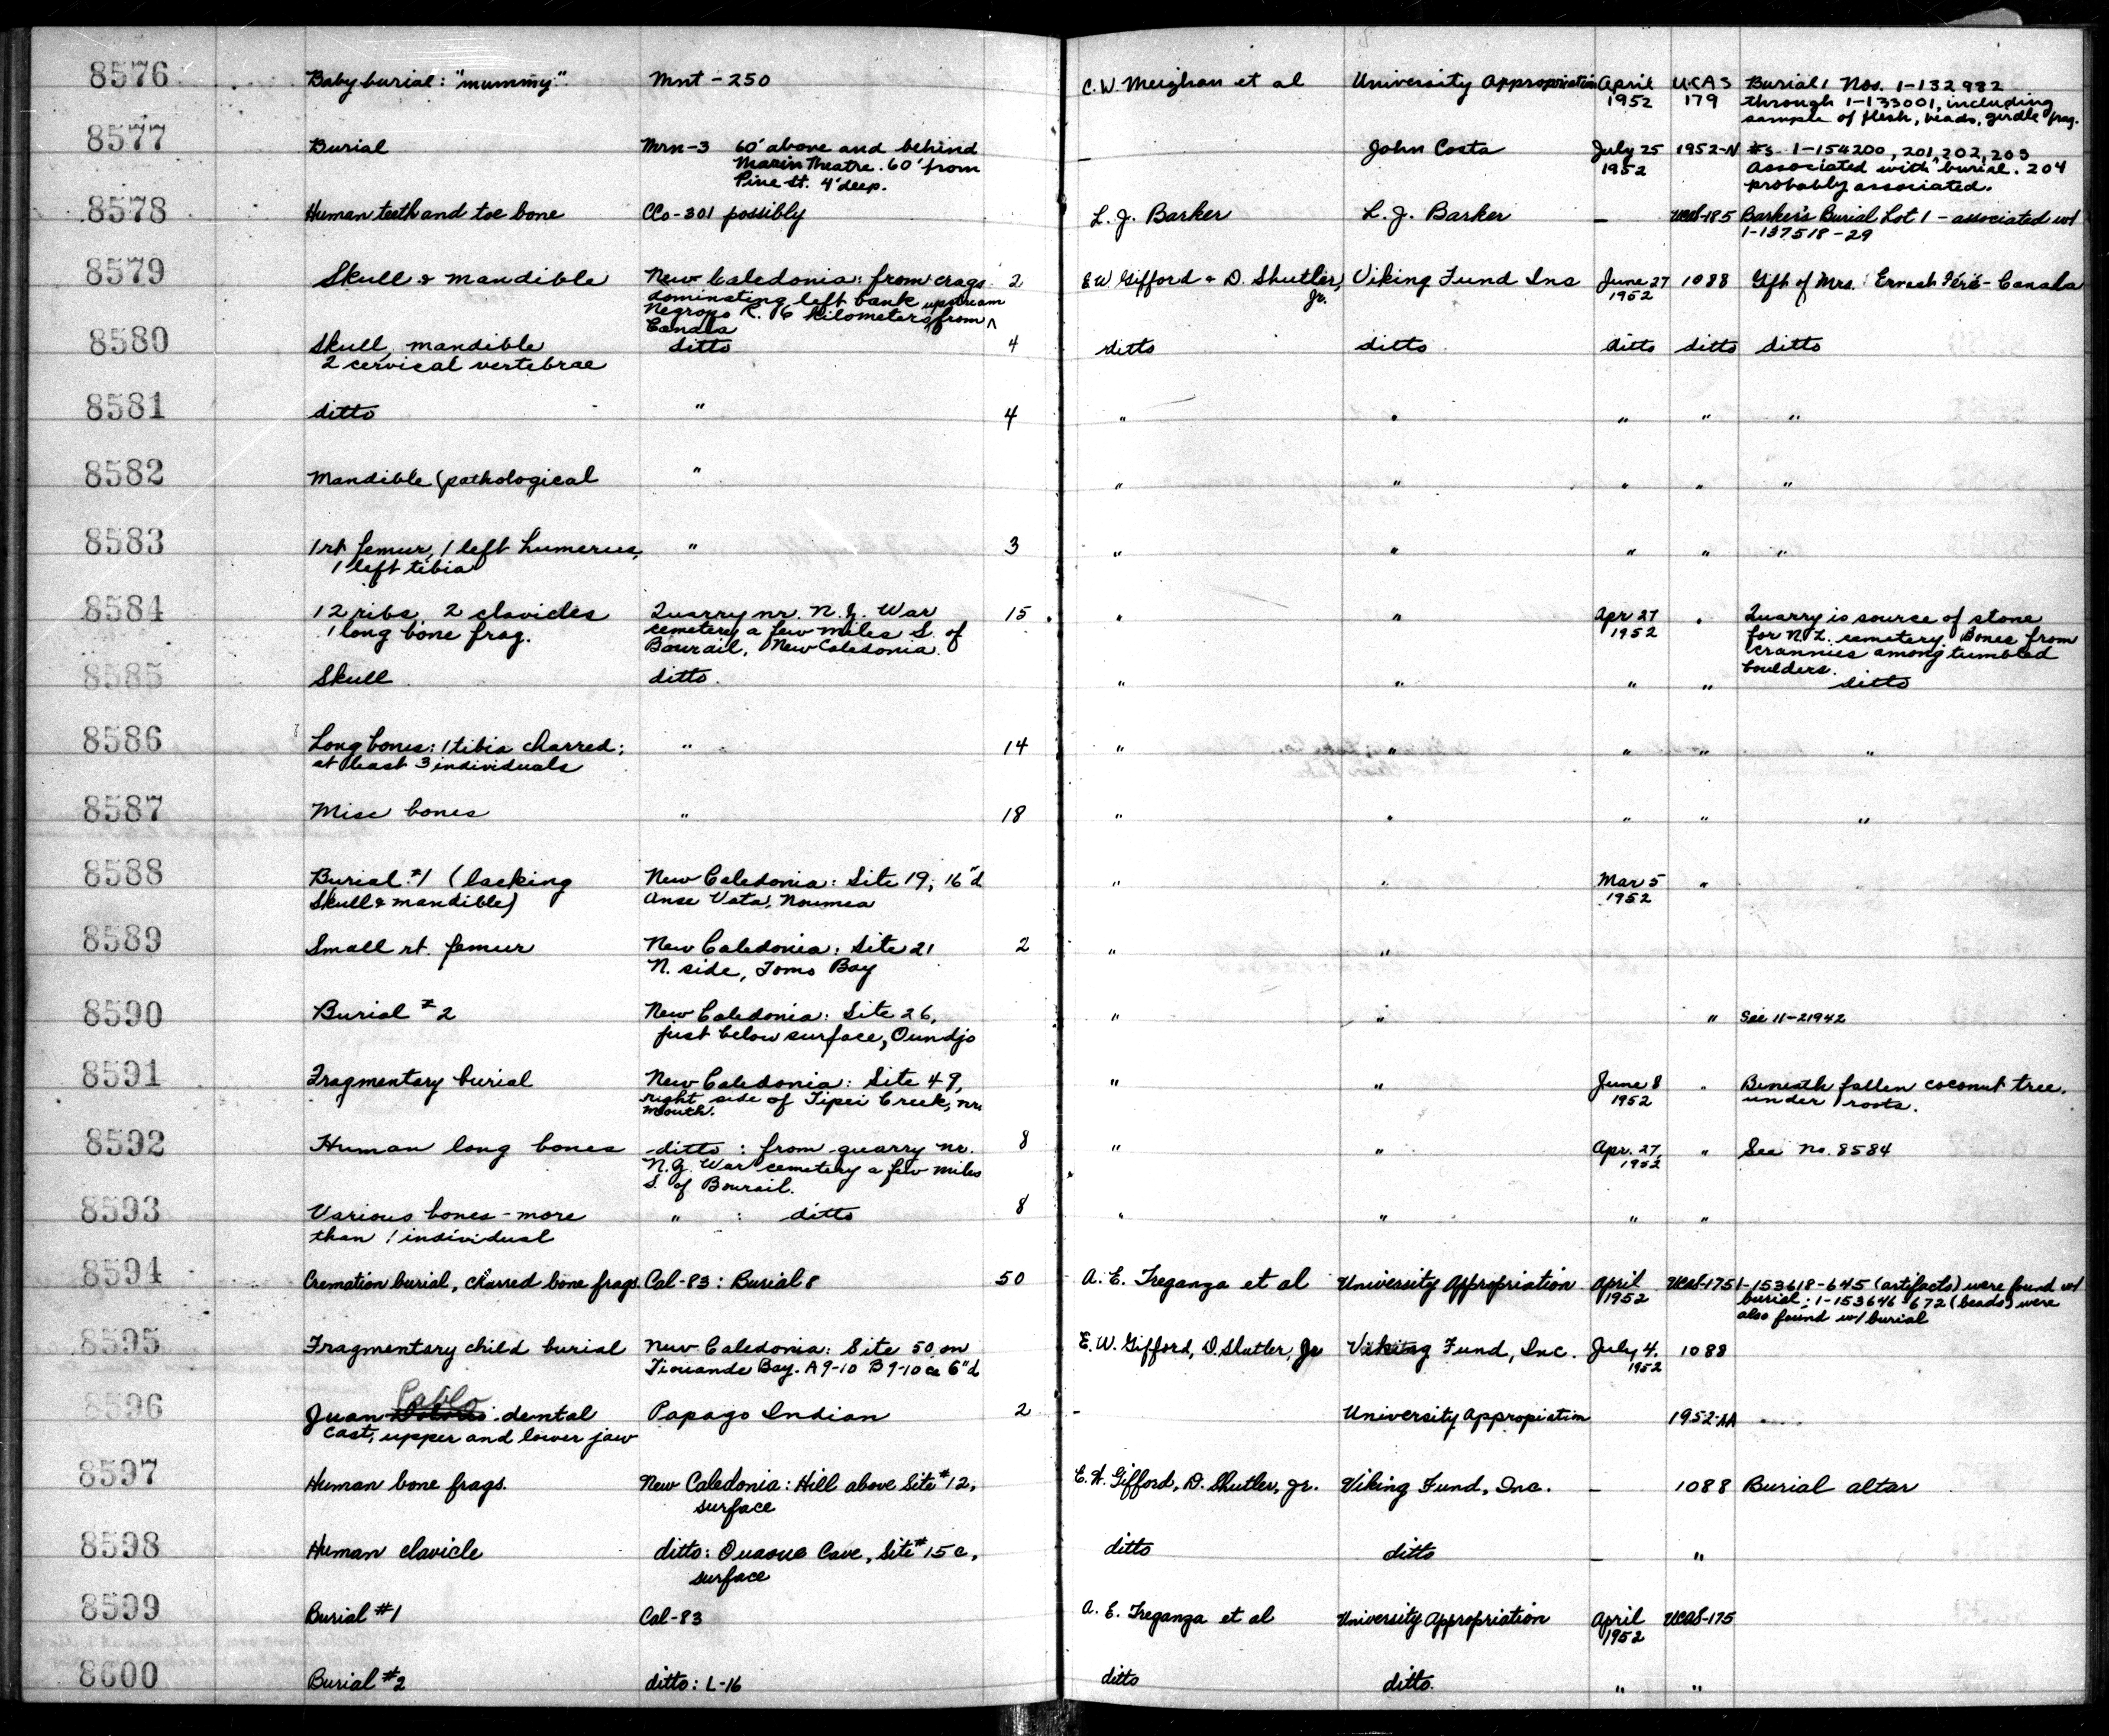 8576 Baby burial: "mummy". Mnt-250 C.W. Meighan et al University Appropriation April UCAS Burial 1 Nos. 1-132982
1952 179 through 1-133001, including
sample of flesh, beads, girdle frag.
8577 Burial Mrn-3 60' above and behind — John Costa July 25 1952-N #s. 1-154200, 201, 202, 203
Marin Theatre. 60' from 1952 associated with burial. 204
Pine St. 4' deep. probably associated.
8578 Human teeth and toe bone CCo-301 possibly L. J. Barker L. J. Barker — UCAS-185 Barker's Burial Lot 1 - associated w/
1-137518-29
8579 Skull & mandible New Caledonia: from crags 2 E W Gifford & D. Shutler, Jr. Viking Fund Inc June 27 1088 Gift of Mrs. Ernest Féré - Canala
dominating left bank upstream 1952
Negropo R. 6 kilometers from
Canala
8580 Skull, mandible ditto 4 ditto ditto ditto ditto ditto
2 cervical vertebrae
8581 ditto " 4 " " " " "
8582 Mandible (pathological " " " " " "
8583 1 rt femur, 1 left humerus, " 3 " " " " "
1 left tibia
8584 12 ribs, 2 clavicles Quarry nr. N.Z. War 15 " " Apr 27 " Quarry is source of stone
1 long bone frag. cemetery a few miles S. of 1952 for N.Z. cemetery. Bones from
Bourail, New Caledonia. crannies among tumbled
boulders.
8585 Skull ditto. " " " " ditto
8586 Long bones: 1 tibia charred; " 14 " " " " "
at least 3 individuals
8587 Misc bones " 18 " " " " "
8588 Burial #1 (lacking New Caledonia: Site 19; 16"d " " Mar 5 "
Skull & mandible) Anse Vata, Noumea 1952
8589 Small rt. femur New Caledonia: Site 21 2 " "
N. side, Tomo Bay
8590 Burial #2 New Caledonia: Site 26, " " " See 11-21942
just below surface, Oundjo
8591 Fragmentary burial New Caledonia: Site 49, " " June 8 " Beneath fallen coconut tree.
right side of Tipei Creek, nr. 1952 under roots.
mouth.
8592 Human long bones ditto: from quarry nr. 8 " " Apr. 27, " See No. 8584
N.Z. War cemetery a few miles 1952
S. of Bourail.
8593 Various bones - more " : ditto 8 " " " "
than 1 individual
8594 Cremation burial, charred bone frags. Cal-83: Burial 8 50 A. E. Treganza et al University Appropriation April UCAS-175 1-153618-645 (artifacts) were found w/
1952 burial; 1-153646-672 (beads) were
also found w/ burial
8595 Fragmentary child burial New Caledonia: Site 50, on E. W. Gifford, D. Shutler, Jr Viking Fund, Inc. July 4, 1088
Tiouande Bay. A9-10 B9-10 6"d 1952
8596 Juan Pablo dental Papago Indian 2 - University Appropiation 1952-AA
cast, upper and lower jaw
8597 Human bone frags. New Caledonia: Hill above Site #12, E. W. Gifford, D. Shutler, Jr. Viking Fund, Inc. — 1088 Burial altar
surface
8598 Human clavicle ditto: Ouaoue Cave, Site #15c, ditto ditto — "
surface
8599 Burial #1 Cal-83 A. E. Treganza et al University Appropriation April UCAS-175
1952
8600 Burial #2 ditto: L-16 ditto ditto. " "